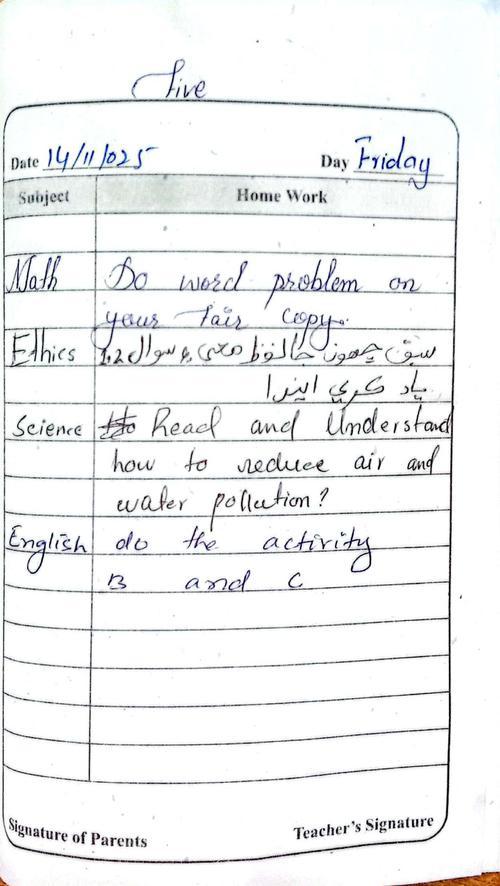 Five
Date 14/11/025 Day Friday
Subject Home Work
Math Do word problem on
your fair copy.
Ethics سبق چھون جا لفظ معنيٰ ۽ سوال 1.2
ياد ڪري ايندا
Science Read and Understand
how to reduce air and
water pollution?
English do the activity
B and C
Signature of Parents Teacher's Signature